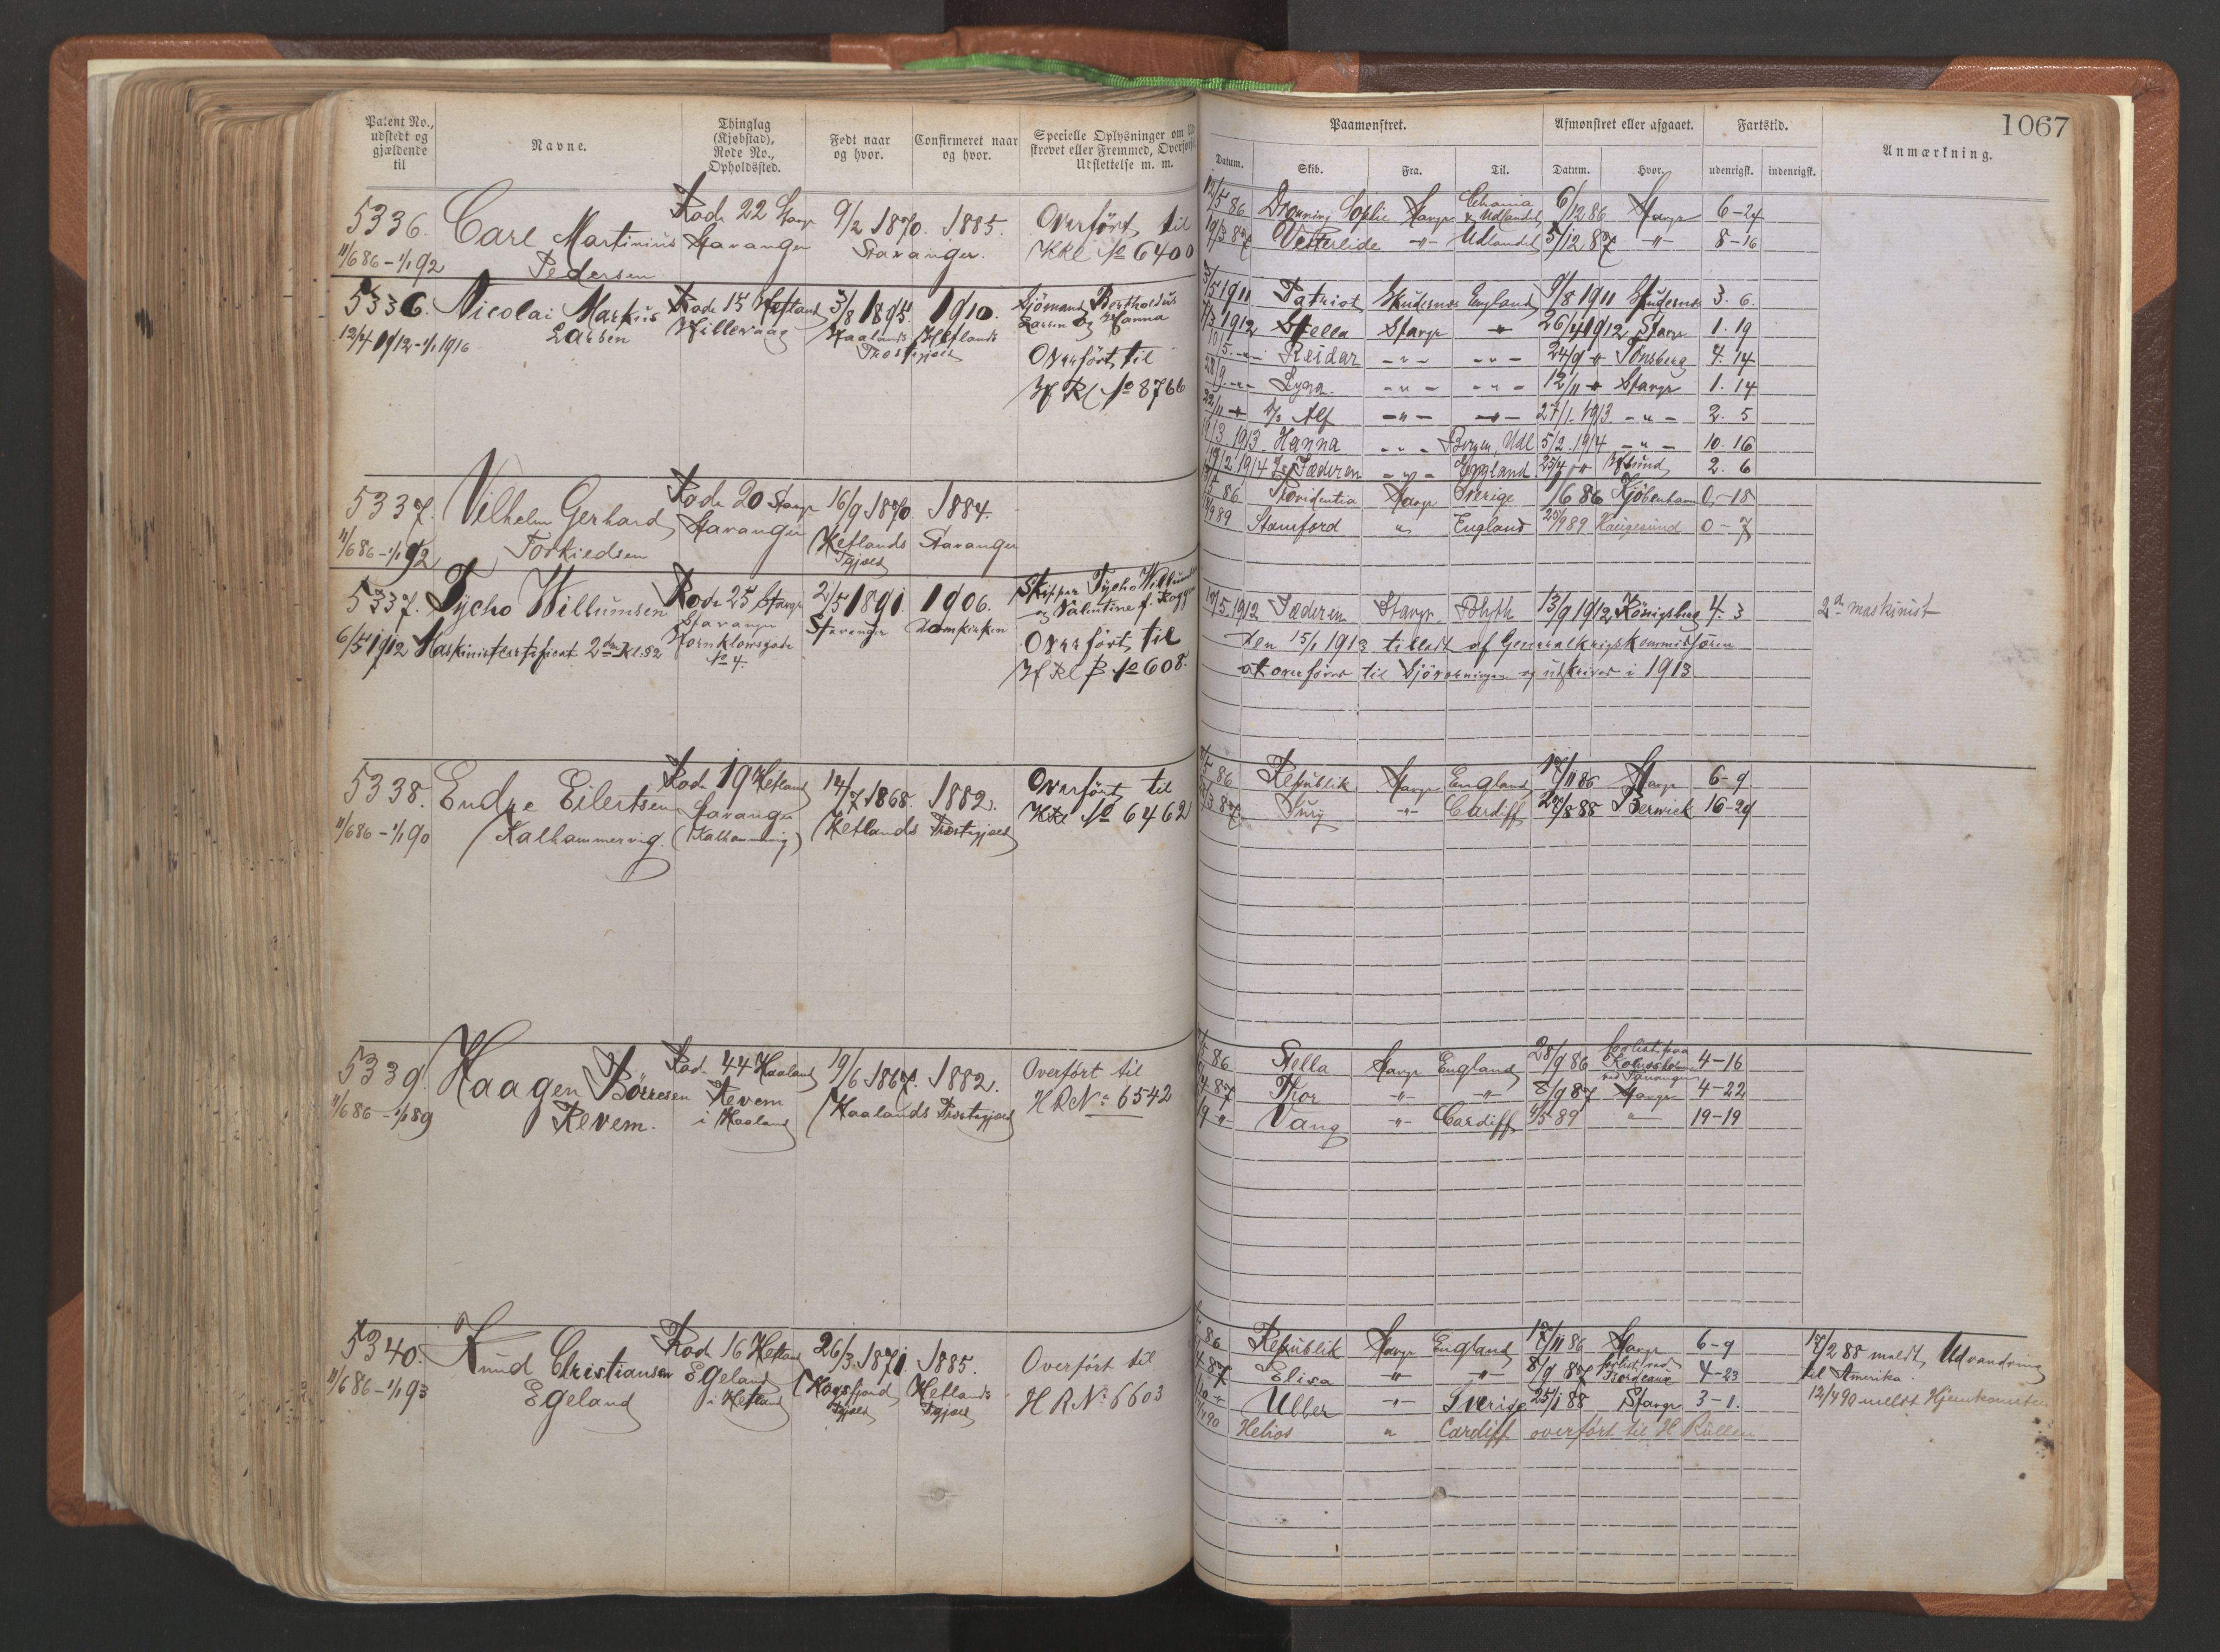 1067
Patent No., udstedt og gjældende til
Navne.
Thinglag (Kjøbstad), Rode No., Opholdssted.
Født naar og hvor.
Confirmeret naar og hvor.
Specielle Oplysninger om
Udslettelse m. m.
Paamønstret.
Afmønstret eller afgaaet.
Fartstid.
Anmærkning.
Datum. Skib. Fra. Til. Datum. Hvor. udenrigsk. indenrigsk.
5336. Carl Martinius Rode 22 Stavgr 9/2 1870. 1885. Overført til
11/6 86 - 1/1 92 Pedersen Stavanger Stavanger. No 6400
12/5 86 Dronning Sophie Stavgr Chrania & Udlandet 6/12 86 Stavgr 6-24
19/3 87 Vesterlide -"- Udlandet 5/12 87 -"- 8-16
5336. Nicolai Markus Rode 15 Hetland 3/8 1895. 1910. Sjömand Bertholdus
12/4 1912 - 1/1 1916 Larsen Hillevaag Haalands Hetlands Larsen og Hanna
Prostegjæld
Overført til
No 8766
3/5 1911 Patriot Skudesnes England 9/8 1911 Skudesnes 3. 6.
7/3 1912 Stella Stavgr -"- 26/4 1912 Stavgr 1. 19
10/5 -"- Reidar -"- -"- 24/9 " Tönsberg 4. 14
28/9 -"- Lyna -"- -"- 12/11 " Stavgr 1. 14
22/11 " D/S Alf -"- -"- 27/1. 1913 -"- 2. 5
1913 Hanna -"- Bergen, Udl 5/2. 1914 -"- 10. 16
1914 Jæderen -"- England 25/4 " 2. 6
5337. Vilhelm Gerhard Rode 20 Stavgr 16/9 1870. 1884.
11/6 86 - 1/1 92 Torkildsen Stavanger Hetlands Pgjæld Stavanger
86 Providentia Stavgr Sverige 1/6 86 Kjöbenhavn 0-18
89 Stamford " England 25/9 89 Haugesund 0-7
5337. Tycho Willumsen Rode 25 Stavgr 2/5 1891. 1906. Skipper Tycho Willumsen
Stavanger Stavanger Domkirken og Valentine f.
6/5 1912 Maskinistcertifikat 2den Kl. 52 Hornklovsgade No 4. Overført til
No 608.
5. 1912 Jæderen Stavgr. Blyth 13/9 1912 Königsberg 4. 3 2den maskinist
Den 15/1 1913 tilladt af Generalkrigskommissæren
at overføres til Sjövæbningen og udskrives i 1913
5338. Endre Eilertsen Rode 19 Hetland 14/7 1868. 1882. Overført til
11/6 86 - 1/1 90 Kalhammervig. Stavanger (Kalhammervig) Hetlands Prestegjæld No 6462
86 Republik Stavgr England 17/11 86 Stavgr 6-9
3 87 -"- Cardiff 88 Berwick 16-29
5339. Haagen Börresen Rode 44 Haaland 19/6 1867. 1882. Overført til
11/6 86 - 1/1 89 Revem. Revem i Haaland Haalands Prestegjæld H R No 6542
86 Stella Stavgr England 28/9 86 forlist paa 4-16
ved Tananger
87 Thor -"- -"- 8/9 87 Stavgr 4-22
9 " Vang -"- Cardiff 4/5 89 " 19-19
5340. Knud Christiansen Rode 16 Hetland 26/3 1871. 1885. Overført til
11/6 86 - 1/1 93 Egeland Egeland i Hetland Høgsfjord Pgjæld Hetlands Pgjæld H R No 6603
86 Republik Stavgr England 17/11 86 Stavgr 6-9 17/2 88 meldt Udvandring
87 Elisa " -"- 8/9 87 forlist ved Bordeaux 4-23 til Amerika.
Ubber -"- Sverige 25/1 88 Stavgr 3-1. 12/4 90 meldt Hjemkomsten
90 Helios " Cardiff overført til H Rullen